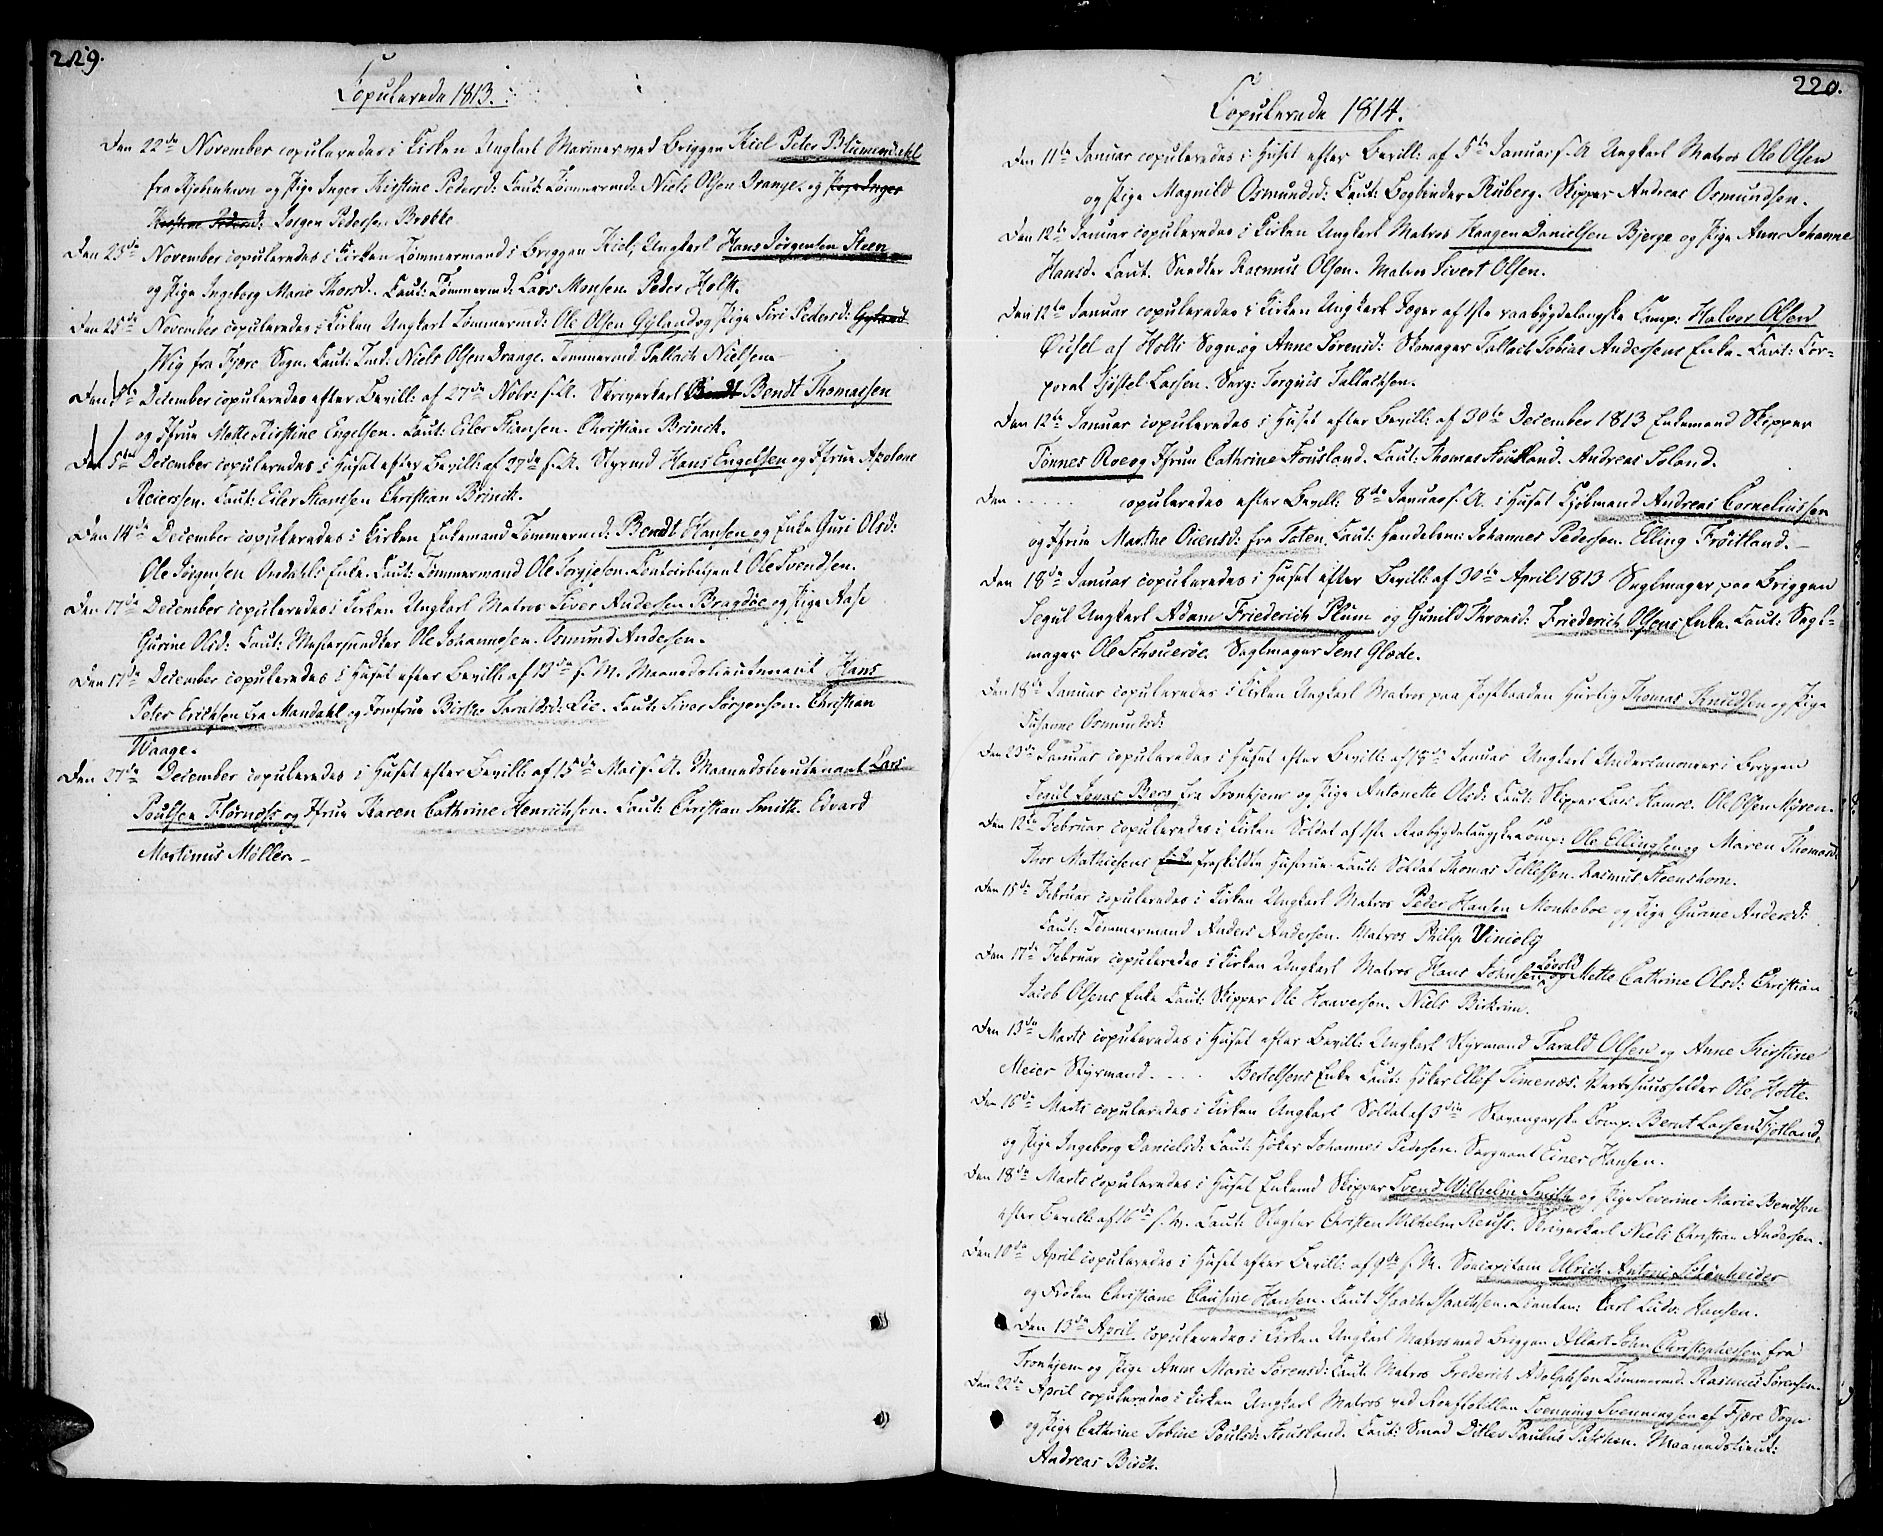 229.
Copulerede 1813.
Den 22de November copuleredes i Kirken Ungkarl Mariner med Briggen Kiel Peter Blumensahl
fra Kjøbenhavn og Pige Inger Kirstine Pedersd: Caut: Tømmermd: Niels Olsen Drange. og Pige Inger
Kirstine Pedersd: Jørgen Pedersen Brække
Den 25de November copuleredes i Kirken Tømmermand i Briggen Kiel, Ungkarl Hans Jørgensen Steen
og Pige Ingeborg Marie Thorsd. Caut: Tømmermd: Lars Monsen. Peder Holk.
Den 25de November copuleredes i Kirken Ungkarl Tømmermd: Ole Olsen Gyland og Pige Siri Pedersd: Gyland
Wig fra Fjære Sogn. Caut: Tmd: Niels Olsen Drange. Tømmermd Tallach Nielsen
Den December copuleredes efter Bevill: af 27de Nobr: f. A. Skriverkarl Bendt Bendt Thomassen
og Jfrue Mette Kirstine Engelsen. Caut: Eiler Hansen. Christian Brinck.
Den 5de December copuleredes i Huset efter Bevill: af 27de f. A. Styrmd Hans Engelsen og Jfrue Apolone
Reierssen. Caut: Eiler Hanssen Christian Brinch.
Den 14de December copuleredes i Kirken Enkemand Tømmermd: Bendt Hansen og Enke Guri Olsd:
Ole Jørgensen Omdahls Enke. Caut: Tømmermand Ole Torgiesen. Contoirbetjent Ole Svendsen.
Den 17de December copuleredes i Kirken Ungkarl Matros Siver Andersen Bragdøe og Pige Aase
Gurine Olsd: Caut: Ole Johannesen. Osmund Andersen.
Den 17de December copuleredes i Huset efter Bevill: af 13de f. M. Maanedslieutenant Hans
Peter Erichsen fra Mandahl og Jomfrue Birthe Taraldsd: Lie. Caut: Siver Jørgensen. Christian
Waage.
Den 27de December copuleredes i Huset efter Bevill: af 15de Mai f. A. Maanedslieutenant Lars
Poulsen Flørness og Jfrue Karen Cathrine Henrichsen. Caut: Christian Smith. Edvard
Martinus Møller.
220.
Copulerede 1814.
Den 11te Januar copuleredes i Huset efter Bevill: af 5te Januar f. A Ungkarl Matros Ole Olsen
og Pige Magnild Osmundsd: Caut: Bogbinder Ruberg. Skipper Andreas Osmundsen.
Den 12te Januar copuleredes i Kirken Ungkarl Matros Haagen Danielsen Bjerge og Pige Anne Johanne
Hansd. Caut. Snedker Rasmus Olsen. Matros Sivert Olsen.
Den 12te Januar copuleredes i Kirken Ungkarl Jæger af 1ste raabygdelagske Comp: Halvor Olsen
af Holts Sogn og Anne Sørensd: Skomager Tallach Tobias Andersens Enke. Caut: Cor-
poral Kjøstel Larsen. Serg: Torguus Tallachsen.
Den 12te Januar copuleredes i Huset efter Bevill: af 30te December 1813 Enkemand Skipper
Tønnes Roe og Jfrue Cathrine Housland. Caut: Thomas Housland. Andreas Soland.
Den . . . . . copuleredes efter Bevill: 8de Januar f. A. i Huset Kjøbmand Andreas Corneliussen
og Jfrue Marthe Ouensd: fra Toten. Caut: Handelsm: Johannes Pedersen. Elling Frøitland.
Den 18de Januar copuleredes i Huset efter Bevill: af 30te April 1813 Seglmager paa Briggen
Segul Ungkarl Adam Friederich Plum og Gunild Thronsd: Friederich Olsens Enke. Caut: Segl-
mager Ole Schouerøe. Seglmager Jens Glæde.
Den 18de Januar copuleredes i Kirken Ungkarl Matros paa Postbaaden Hurtig Thomas Knudsen og Pige
Susanne Osmundsd:
Den 23de Januar copuleredes i Huset efter Bevill: af 18de Januar Ungkarl Undercanoneer i Briggen
Segul Jonas Berg fra Tronhjem og Pige Antonette Olsd: Caut: Skipper Lars Hamre. Ole Olsen Myren.
Den 12te Februar copuleredes i Kirken Soldat af 1ste Raabygdelaugske Comp: Ole Ellingsen og Maren Thomasd:
Thor Mathiesens Enke fraskildte Hustrue. Caut: Soldat Thomas Tellefsen. Rasmus Steenshorn.
Den 15de Februar copuleredes i Kirken Ungkarl Matros Peder Hansen Monkeboe og Pige Gurine Andersd:
Caut: Tømmermand Anders Andersen. Matros Philip Viniolg
Den 17de Februar copuleredes i Kirken Ungkarl Matros Hans Johnsen og Mette Cathrine Olsd: Christian
Jacob Olsens Enke Caut: Skipper Ole Haaversen. Niels Birkrim.
Den 13de Marts copuleredes i Huset efter Bevill: Ungkarl Styrmand Tarald Olsen og Anne Kirstine
Meier Styrmand . . . . Bertelsens Enke Caut: Høker Ellef Timenes. Vertshuusholder Ole Holte.
Den 16de Marts copuleredes i Kirken Ungkarl Soldat af 3die Stavangerske Comp: Bernt Larsen Fjotland,
og Pige Ingeborg Danielsd: Caut: Høker Johannes Pedersen. Sergeant Einer Hansen.
Den 18de Marts copuleredes i Huset Enkemd Skipper Svend Wilhelm Smith og Pige Severine Marie Bendtsen
efter Bevill: af 16de f. M. Caut: Christen Wilhelm Reuss. Skriverkarl Niels Christian Andersen.
Den 10de April copuleredes i Huset efter Bevill: af 9de f. M. Søecapitain Ulrich Antoni Schønheider
og Frøken Christiane Clausine Hansen. Caut Isaach Isaachsen. Lieuten: Carl Ludv: Hansen.
Den 13de April copuleredes i Kirken Ungkarl Matros med Briggen Allart John Christophersen fra
Tronhjem og Pige Anne Marie Sørensd: Caut: Matros Frederich Adolphsen Tømmermd. Rasmus Sørensen.
Den 22de April copuleredes i Kirken Ungkarl Matros ved Roeflotillen Svenning Svenningsen af Fjære Sogn
og Pige Cathrine Tobine Poulsd: Housland. Caut: Smed Ditlev Paulus Paschen. Maanedslieut:
Andreas Bisch.